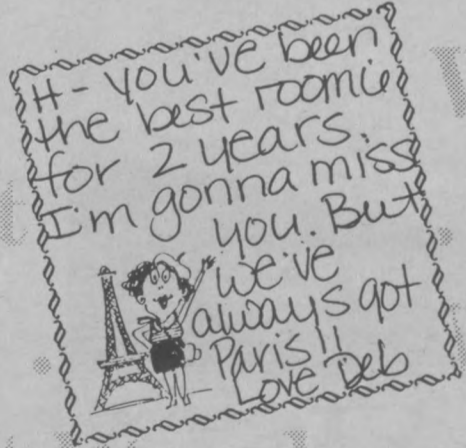 H- You've been
the best roomie
for 2 years.
I'm gonna miss
you. But
we've
always got
Paris!!
Love Deb